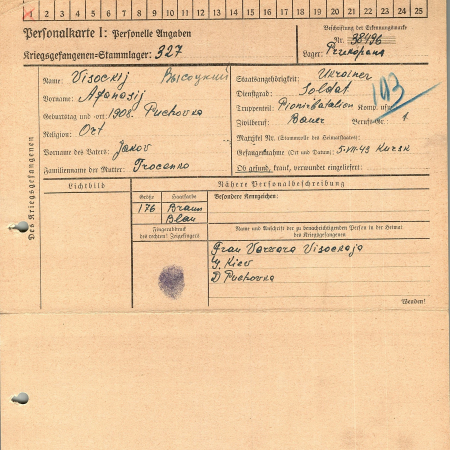 2 3 4 5 6 7 8 9 10 11 12 13 14 15 16 17 18 19 20 21 22 23 24 25
Personalkarte I: Personelle Angaben
Kriegsgefangenen-Stammlager: 327
Beschriftung der Erkennungsmarke
Nr. 38496
Lager: Przekopana
193
Des Kriegsgefangenen
Name: Visockij Высоцкий
Vorname: Afanasij
Geburtstag und -ort: 1908. Puchovka
Religion: Ort
Vorname des Vaters: Jakov
Familienname der Mutter: Trocenko
Staatsangehörigkeit: Ukrainer
Dienstgrad: Soldat
Truppenteil: Pionirbatalion Komp. usw.
Zivilberuf: Bauer Berufs-Gr.: 1
Matrikel Nr. (Stammrolle des Heimatstaates):
Gefangennahme (Ort und Datum): 5-VII-43 Kursk
Ob gesund, krank, verwundet eingeliefert:
Lichtbild
Nähere Personalbeschreibung
Größe Haarfarbe Besondere Kennzeichen:
176 Braun
Blau
Fingerabdruck
des rechten! Zeigefingers
Name und Anschrift der zu benachrichtigenden Person in der Heimat
des Kriegsgefangenen
Frau Varvara Visockaja
g. Kiev
D Puchovka
Wenden!